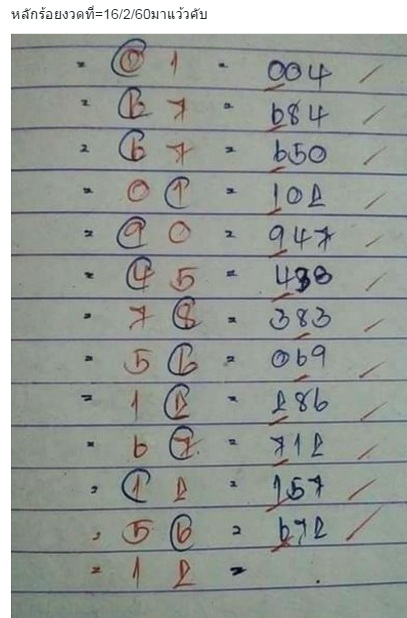 หลักร้อยงวดที่=16/2/60มาแว้วคับ
= 0 1 = 004 /
= 6 7 = 684 /
= 6 7 = 650 /
= 0 1 = 102 /
= 9 0 = 947 /
= 4 5 = 433 /
= 7 8 = 383 /
= 5 6 = 069 /
= 1 2 = 286 /
= 6 7 = 712 /
= 1 2 = 157 /
= 5 6 = 672 /
= 1 2 =